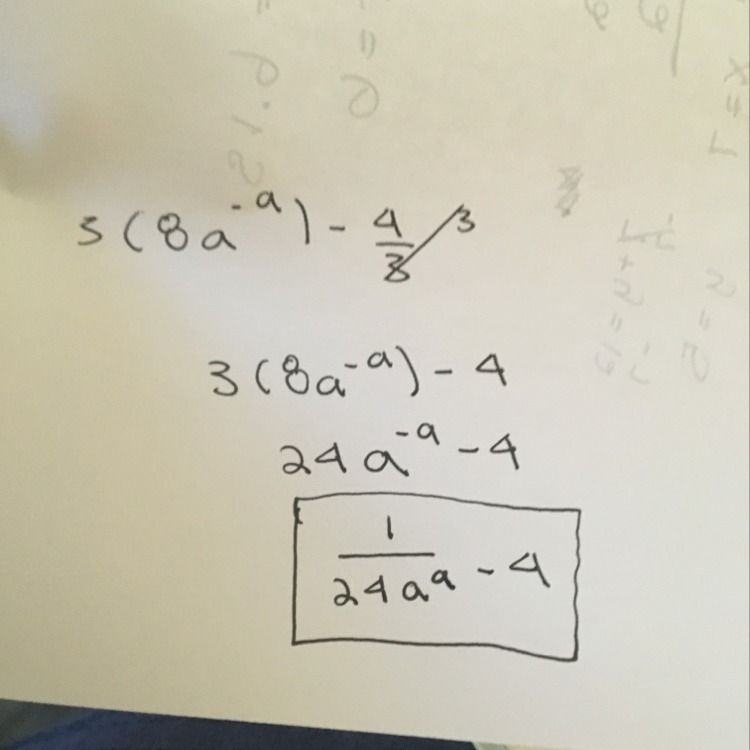 3(8a^{-a}) - \frac{4}{3} 3
3(8a^{-a}) - 4
24a^{-a} - 4
\frac{1}{24a^{a}} - 4